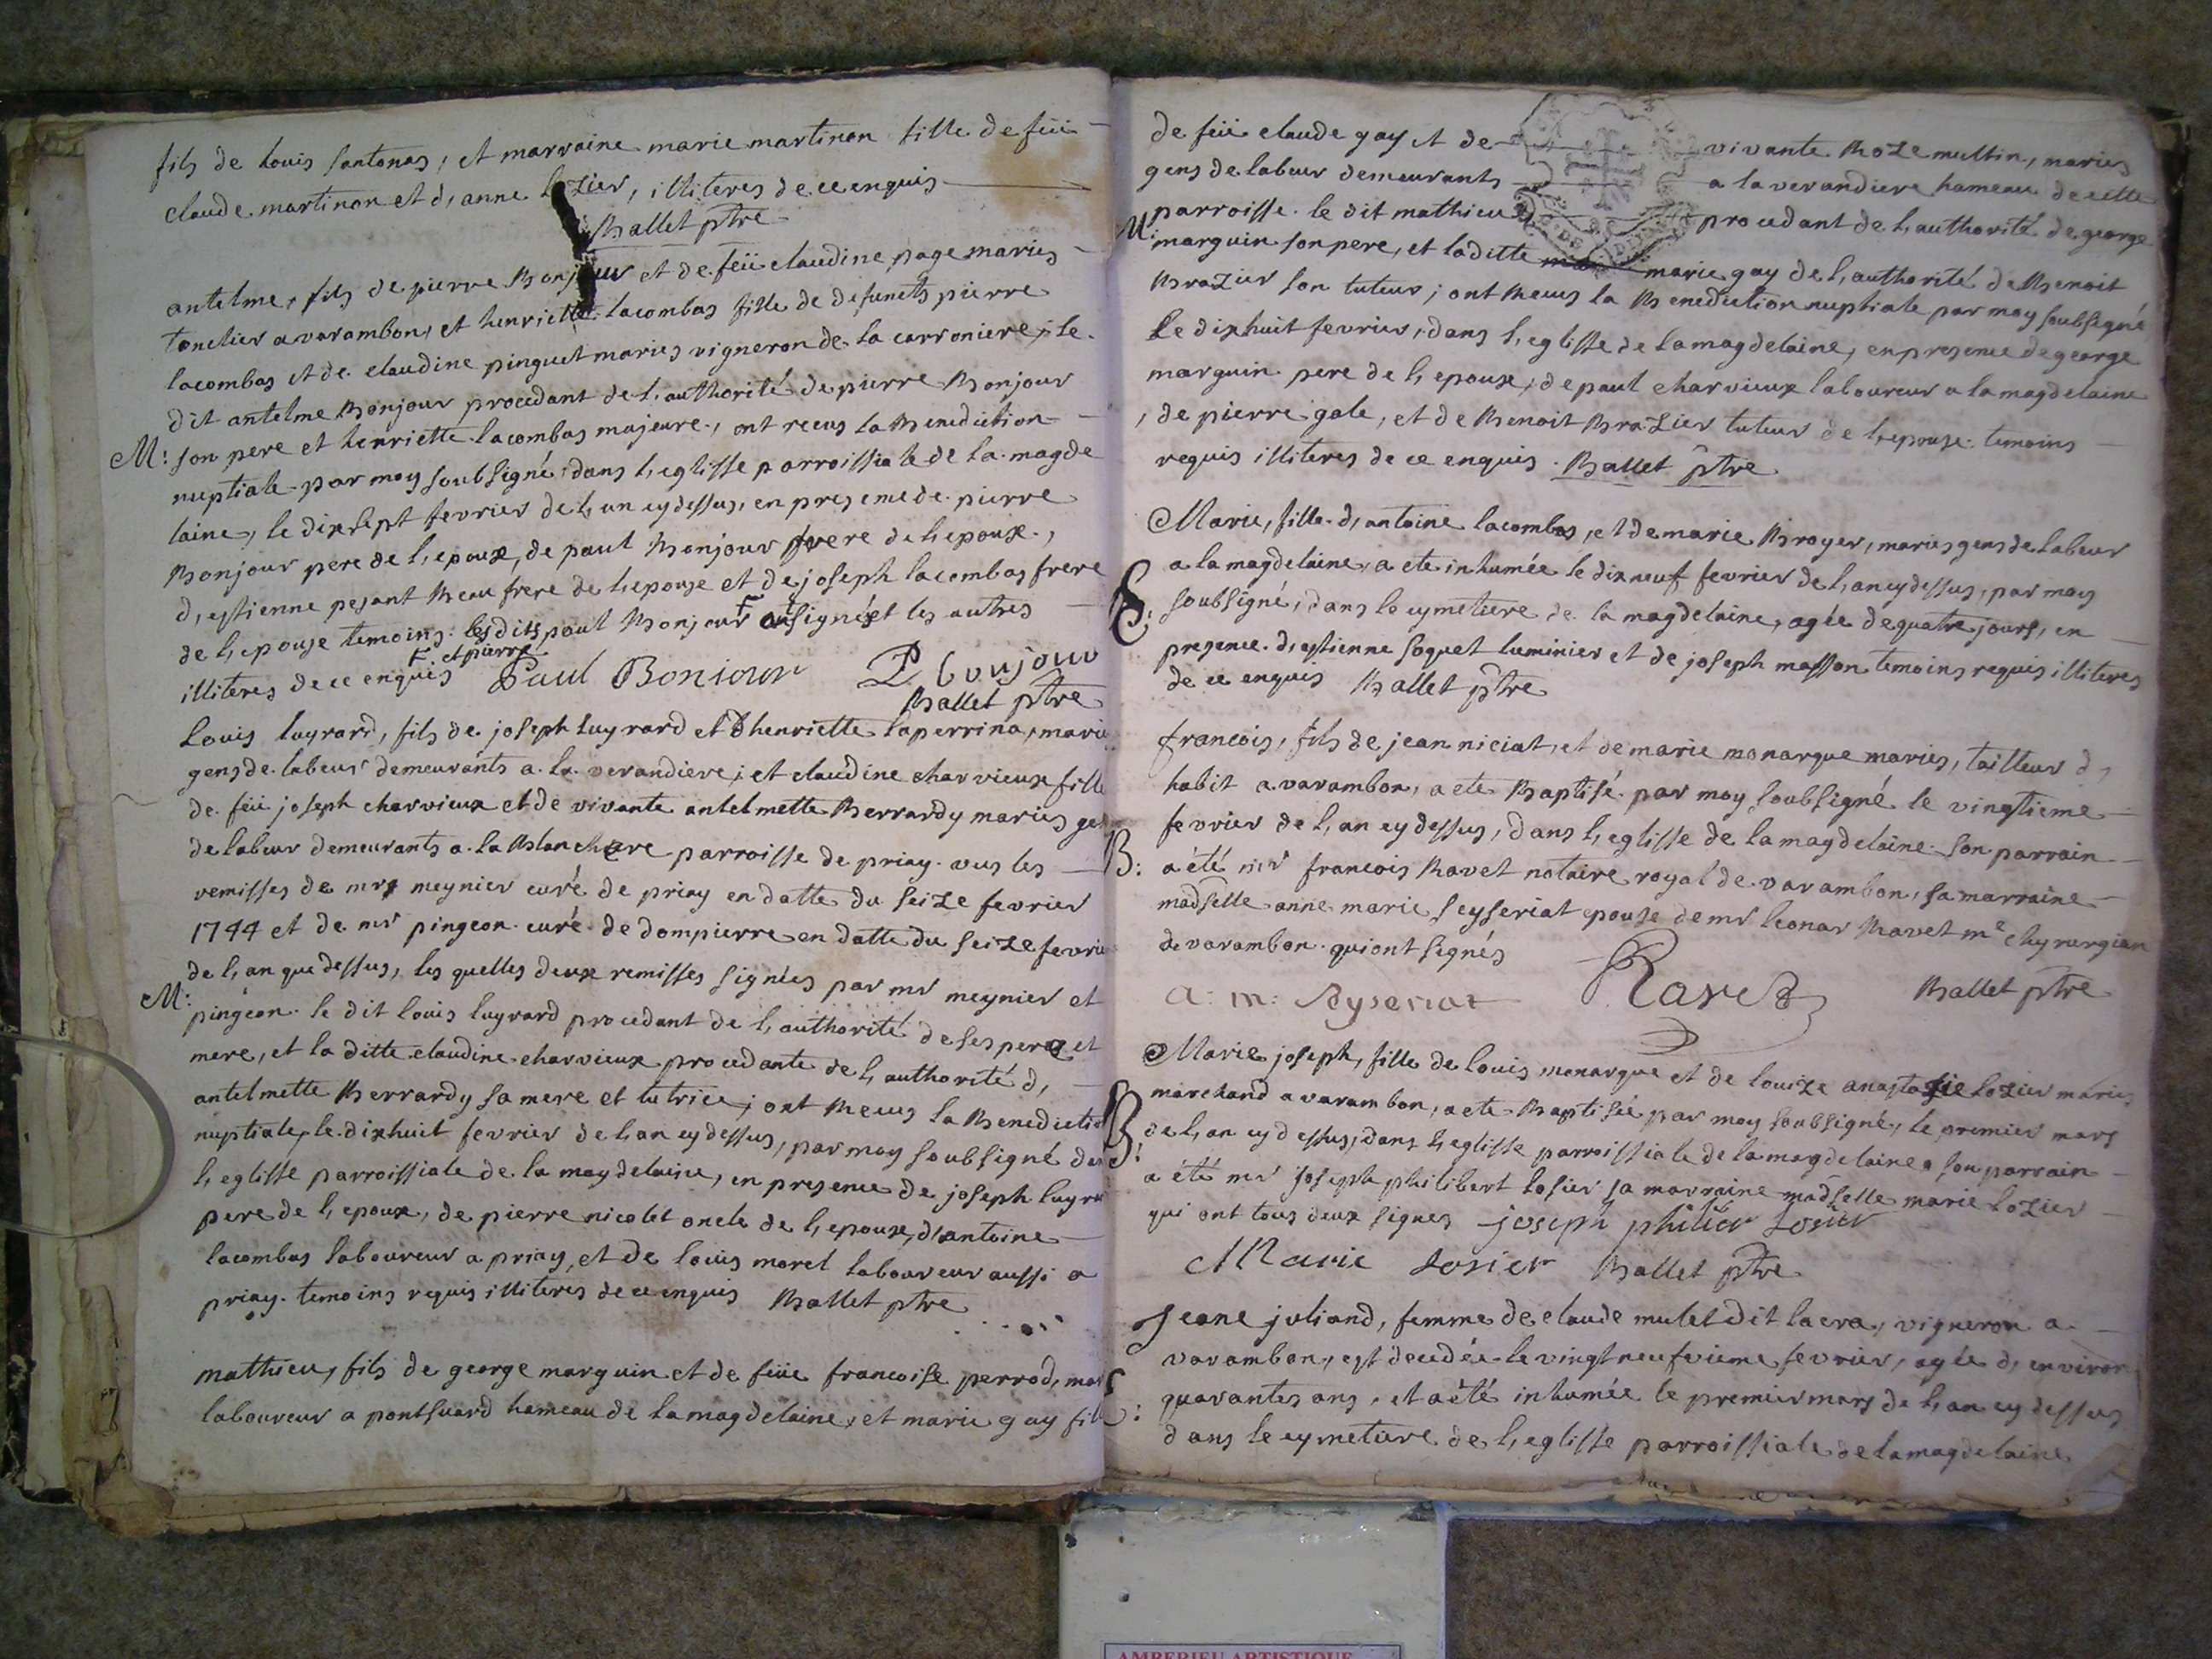 fils de Louis santonas, et marraine marie martinon fille de feü
claude martinon et d, anne lozier, illiteres de ce enquis
Ballet ptre
antelme, fils de pierre Bonjour et de feüe claudine page mariés
tonelier a varambon, et henriette lacombas fille de defunets pierre
lacombas et de claudine pinguet mariés vigneron de la carroniere, le
dit antelme Bonjour procedant de l, authorité de pierre Bonjour
M: son pere et henriette lacombas majeure, ont recus la Benediction
nuptiale par moy soubsigné, dans l, eglisse parroissiale de la magde
laine, le dix sept fevrier de l, an cy dessus, en presence de pierre
Bonjour pere de l, epoux, de paul Bonjour frere de l, epoux,
d, estienne pesant Beau frere de l, epouse et de joseph lacombas frere
de l, epouse temoins. les dits paul Bonjour F ont signés et les autres
illiteres de ce enquis F. et pierre
Paul Bonjour P bonjour
Ballet ptre
Louis luyrard, fils de joseph luyrard et d henriette laperrina, marie
gens de labeur demeurants a la verandiere; et claudine charvieux fille
de feü joseph charvieux et de vivante antelmette Berrardy mariés gens
de labeur demeurants a la Blanchere parroisse de priay. vus les
remisses de mr meynier curé de priay en datte du seize fevrier
1744 et de mr pingeon curé de dompierre en datte du seize fevrie
de l, an que dessus, les quelles deux remisses signées par mr meynier et
M: pingeon. le dit louis luyrard procedant de l, authorité de ses pere et
mere, et la ditte claudine charvieux procedante de l, authorité d,
antelmette Berrardy sa mere et tutrice; ont Recus la Benedictio
nuptiale, le dixhuit fevrier de l, an cy dessus, par moy soubsigné dan
l, eglisse parroissiale de la magdelaine, en presence de joseph luyra
pere de l, epoux, de pierre nicolet oncle de l, epoux, d, antoine
lacombas laboureur a priay, et de louis morel laboureur aussi a
priay. temoins requis illiteres de ce enquis Ballet ptre
mathieu, fils de george marguin et de feüe francoise perrod, mar
laboureur a pontsuard hameau de la magdelaine, et marie gay fil
de feü claude gay et de vivante Roze multin, mariés
gens de labeur demeurants a la verandiere hameau de cette
parroisse. le dit mathieu procedant de l, authorité de george
M: marguin son pere, et la ditte marie gay de l, authorité de Benoit
Brazier son tuteur; ont Recus la Benediction nuptiale par moy soubsigné
Le dixhuit fevrier, dans l, eglisse de la magdelaine, en presence de george
marguin pere de l, epoux, de paul charvieux laboureur a la magdelaine
, de pierre gale, et de Benoit Brazier tuteur de l, epouse. temoins
requis illiteres de ce enquis. Ballet ptre
Marie, fille d, antoine lacombas, et de marie Broyer, mariés gens de labeur
a la magdelaine, a ete inhumée le dixneuf fevrier de l, an cy dessus, par moy
S: soubsigné, dans le cymetiere de la magdelaine, agée de quatre jours, en
presence d, estienne soquet luminier et de joseph masson temoins requis illiteres
de ce enquis Ballet ptre
francois, fils de jean niciat, et de marie monarque mariés, tailleur d,
habit a varambon, a ete Baptisé par moy soubsigné le vingtieme
fevrier de l, an cy dessus, dans l, eglisse de la magdelaine. son parrain
B: a été mr francois Ravet notaire royal de varambon, sa marraine
madselle anne marie seyseriat epouse de mr leonar Ravet me chyrurgian
de varambon. qui ont signés
a: m: Seyseriat Ravet Ballet ptre
Marie joseph, fille de louis monarque et de louize anastasie lozier mariés
marchand a varambon, a ete Baptisée par moy soubsigné, le premier mars
B: de l, an cy dessus, dans l, eglisse parroissiale de la magdelaine. son parrain
a été mr joseph philibert losier sa marraine madselle marie lozier
qui ont tous deux signes joseph philiber Losier
Marie Losier Ballet ptre
Jeane juliand, femme de claude mulet dit lacra, vigneron a
varambon, est decedée le vingt neufvieme fevrier, agée d, environ
S: quarantes ans, et a été inhumée le premier mars de l, an cy dessus
dans le cymetiere de l, eglisse parroissiale de la magdelaine
AMBERIEU ARTISTIQUE